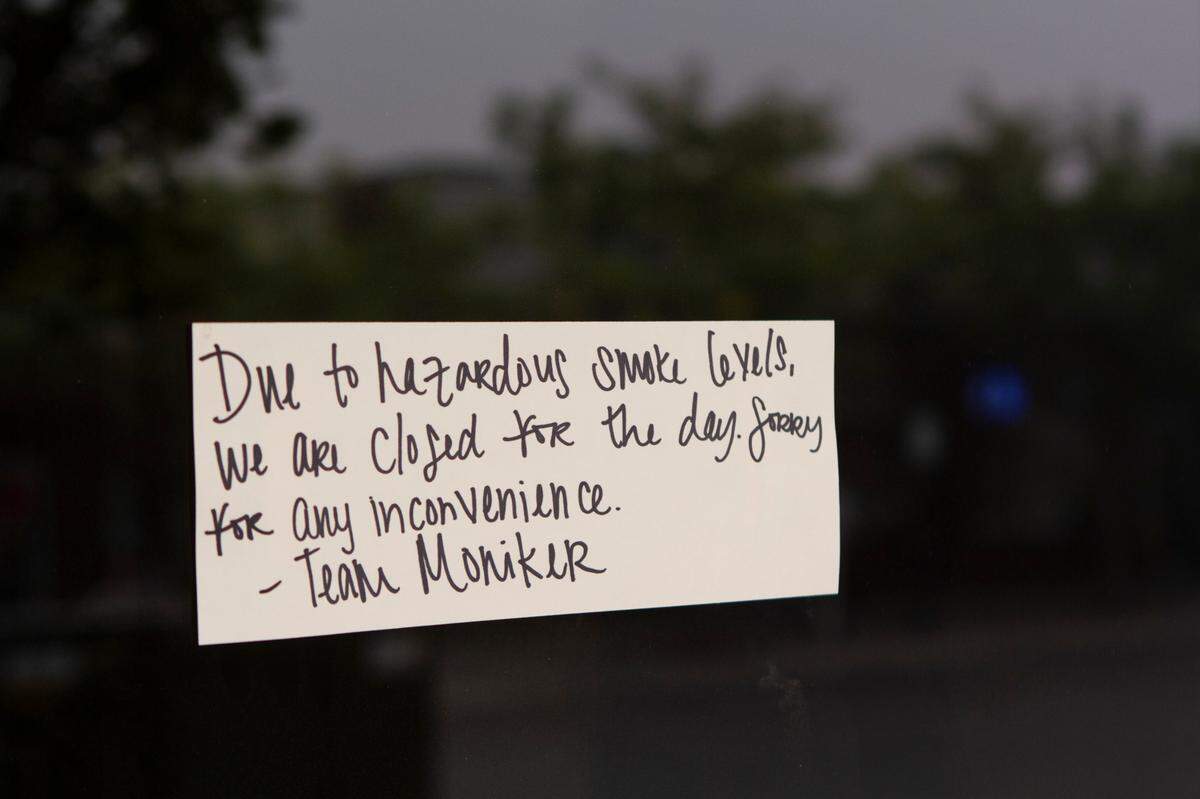 Due to hazardous smoke levels,
we are closed for the day. Sorry
for any inconvenience.
- Team Moniker